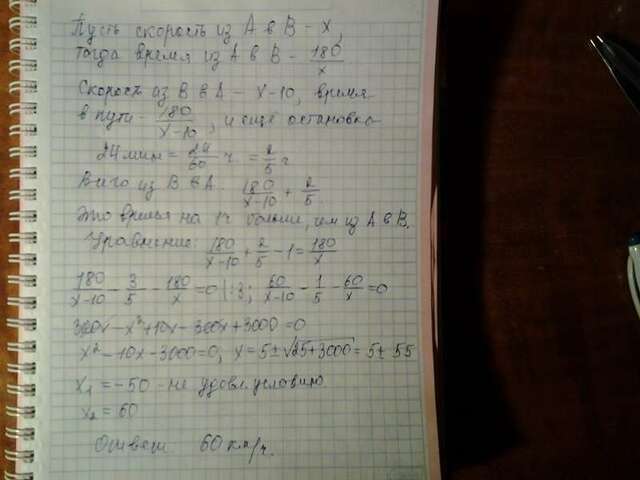 Пусть скорость из А в В - х,
тогда время из А в В - 180/х
Скорость из В в А - х-10, время
в пути - 180/(х-10), и еще остановка
24 мин = 24/60 ч. = 2/5 ч
Всего из В в А. 180/(х-10) + 2/5.
Это время на 1ч больше, чем из А в В.
Уравнение: 180/(х-10) + 2/5 - 1 = 180/х
180/(х-10) - 3/5 - 180/х = 0 |:3; 60/(х-10) - 1/5 - 60/х = 0
300х - х² + 10х - 300х + 3000 = 0
х² - 10х - 3000 = 0, х = 5 ± √25+3000 = 5 ± 55
х₁ = -50 - не удовл. условию
х₂ = 60
Ответ 60 км/ч.